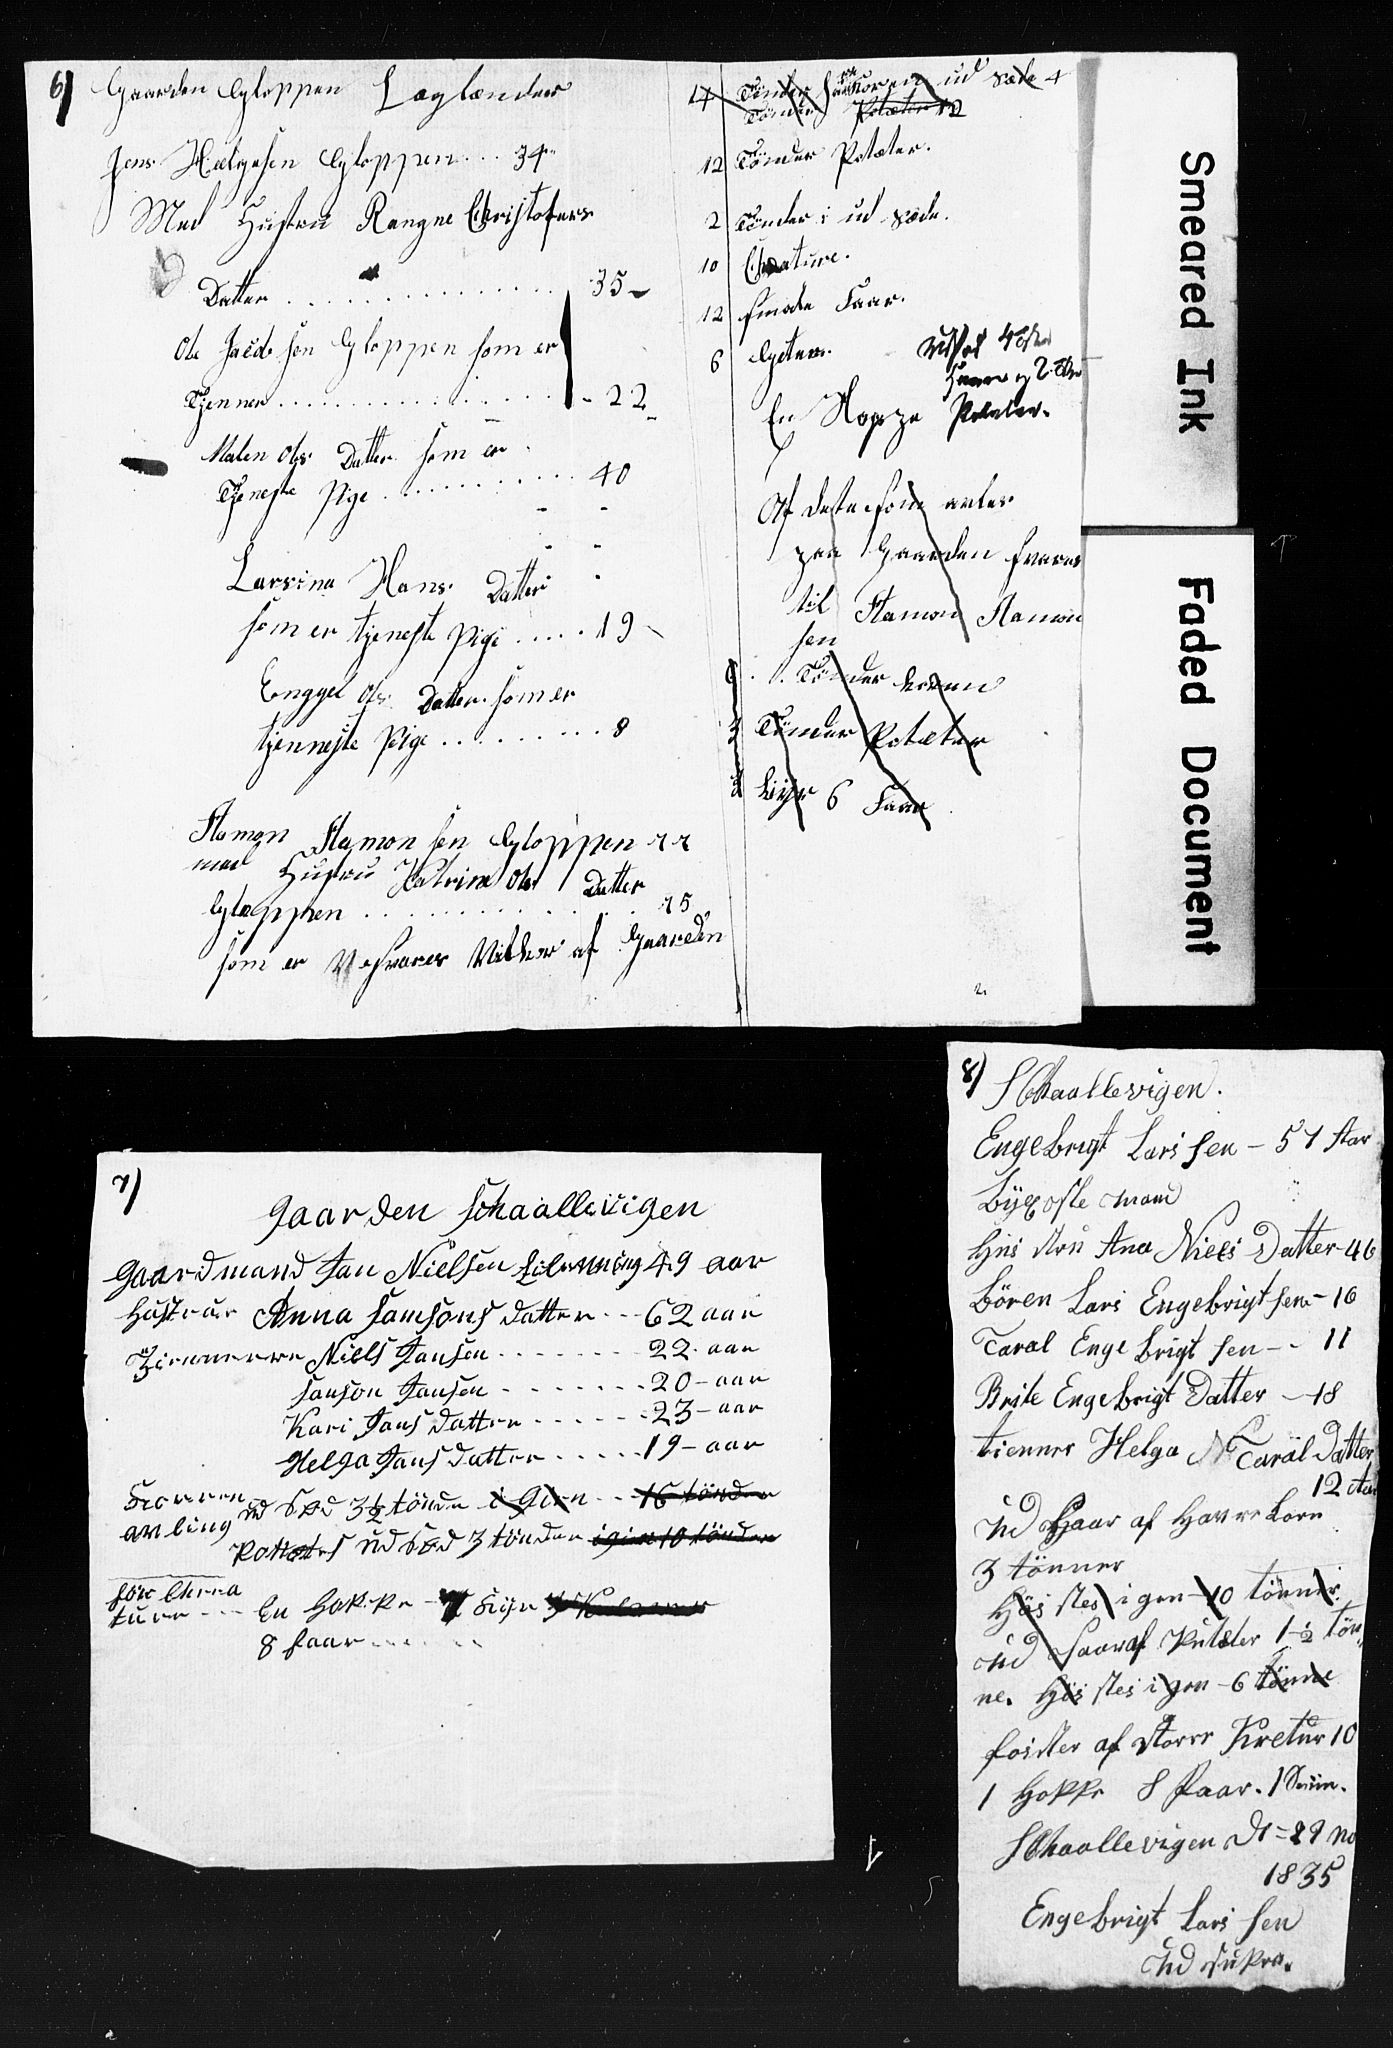 6) Gaarden Gloppen Laglænder
Jens Hælgesen Gloppen ... 34
Med Hustru Rangne Christofers
Datter . . . . . . . . . . 35
Ole Jacobsen Gloppen som er
Tjenner . . . . . . . . . . 22
Malen Ols Datter som er
Tjeneste Pige . . . . . . . . 40
Larsina Hans Datter
som er tjeneste Pige ..... 19
Enggel Ols Datter som er
tjenneste Pige . . . . . . . . 8
Stamon Stamonsen Gloppen 77
med Hustru Katrine Ols Datter
Gloppen . . . . . . . . . . 75
som er Vilkor af Gaarden
4 Tönder Koren ud sæde 4
Tönder Potæter 12
12 Tönder Potæter.
2 Tönder i ud sæde.
10 Creature.
12 smaa Faar.
6 Geter.
Udsæd 4 Tdr
Havre og 2 Tdr
En Hoppe Poteter.
Af dette som avles
paa Gaarden svares
til Stamon Stamon
sen
Tönder koren
3 Tönder Potæter
2 Kyr 6 Faar
Smeared Ink
Faded Document
7)
Gaarden Schaallevigen
Gaardmand Jan Nielsen 49 aar
Hustrue Anna Samsons datter --- 62 aar
Tiennerre Niels Jansen . . . . . . . 22 aar
Samson Jansen - - - - - - - 20 - aar
Kari Jans datter - - - - - - 23 - aar
Helga Jans datter - - - - - 19 - aar
Korren
avling ud Sæd 3½ tönder igien --- 16 tönder
Pottetes ud Sæd 3 tönder igien 10 tönder
for Chrea
ture --- En Hoppe - 7 Kiyr
8 faar - - - - - -
8) Schaallevigen.
Engebrigt Lars sen - 51 Aar
Byxelmand
Hüs stru Ana Niels Datter - 46
Bören Lars Engebrigt sen - 16
Taral Enge brigt sen - - 11
Brite Engebrigt Datter - 18
tienner Helga Taral Datter
12 Aar
Ud Saar af Havre korn
3 tönner
Höstes igen 10 tönner
Ud Saar af Puteter 1 ½ tön
ne. Höstes igen - 6 tönne
foster af storre Kretur 10
1 Hoppe 8 Faar. 1 Sviin.
Schaallevigen D 29 No
1835
Engebrigt Lars sen
Ud supra.